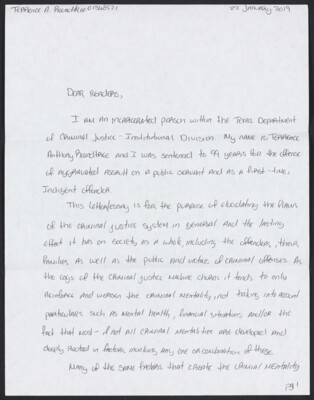 Terrence A. Roundtree 01568571
22 January 2019
Dear Readers,
I am an incarcerated person within the Texas Department
of Criminal Justice - Institutional Division. My name is Terrence
Anthony Roundtree and I was sentenced to 99 years for the offense
of aggravated assault on a public servant and as a first-time,
Indigent offender.
This letter/essay is for the purpose of elucidating the flaws
of the criminal justice system in general and the lasting
effect it has on society as a whole, including the offenders, their
families as well as the public and victims of criminal offenses. As
the cogs of the criminal justice machine churn it tends to only
reinforce and worsen the criminal mentality, not taking into account
particulars such as mental health, financial situations, and/or the
fact that most - if not all criminal mentalities are developed and
deeply rooted in factors involving any one or combination of these.
Many of the same factors that create the criminal mentality